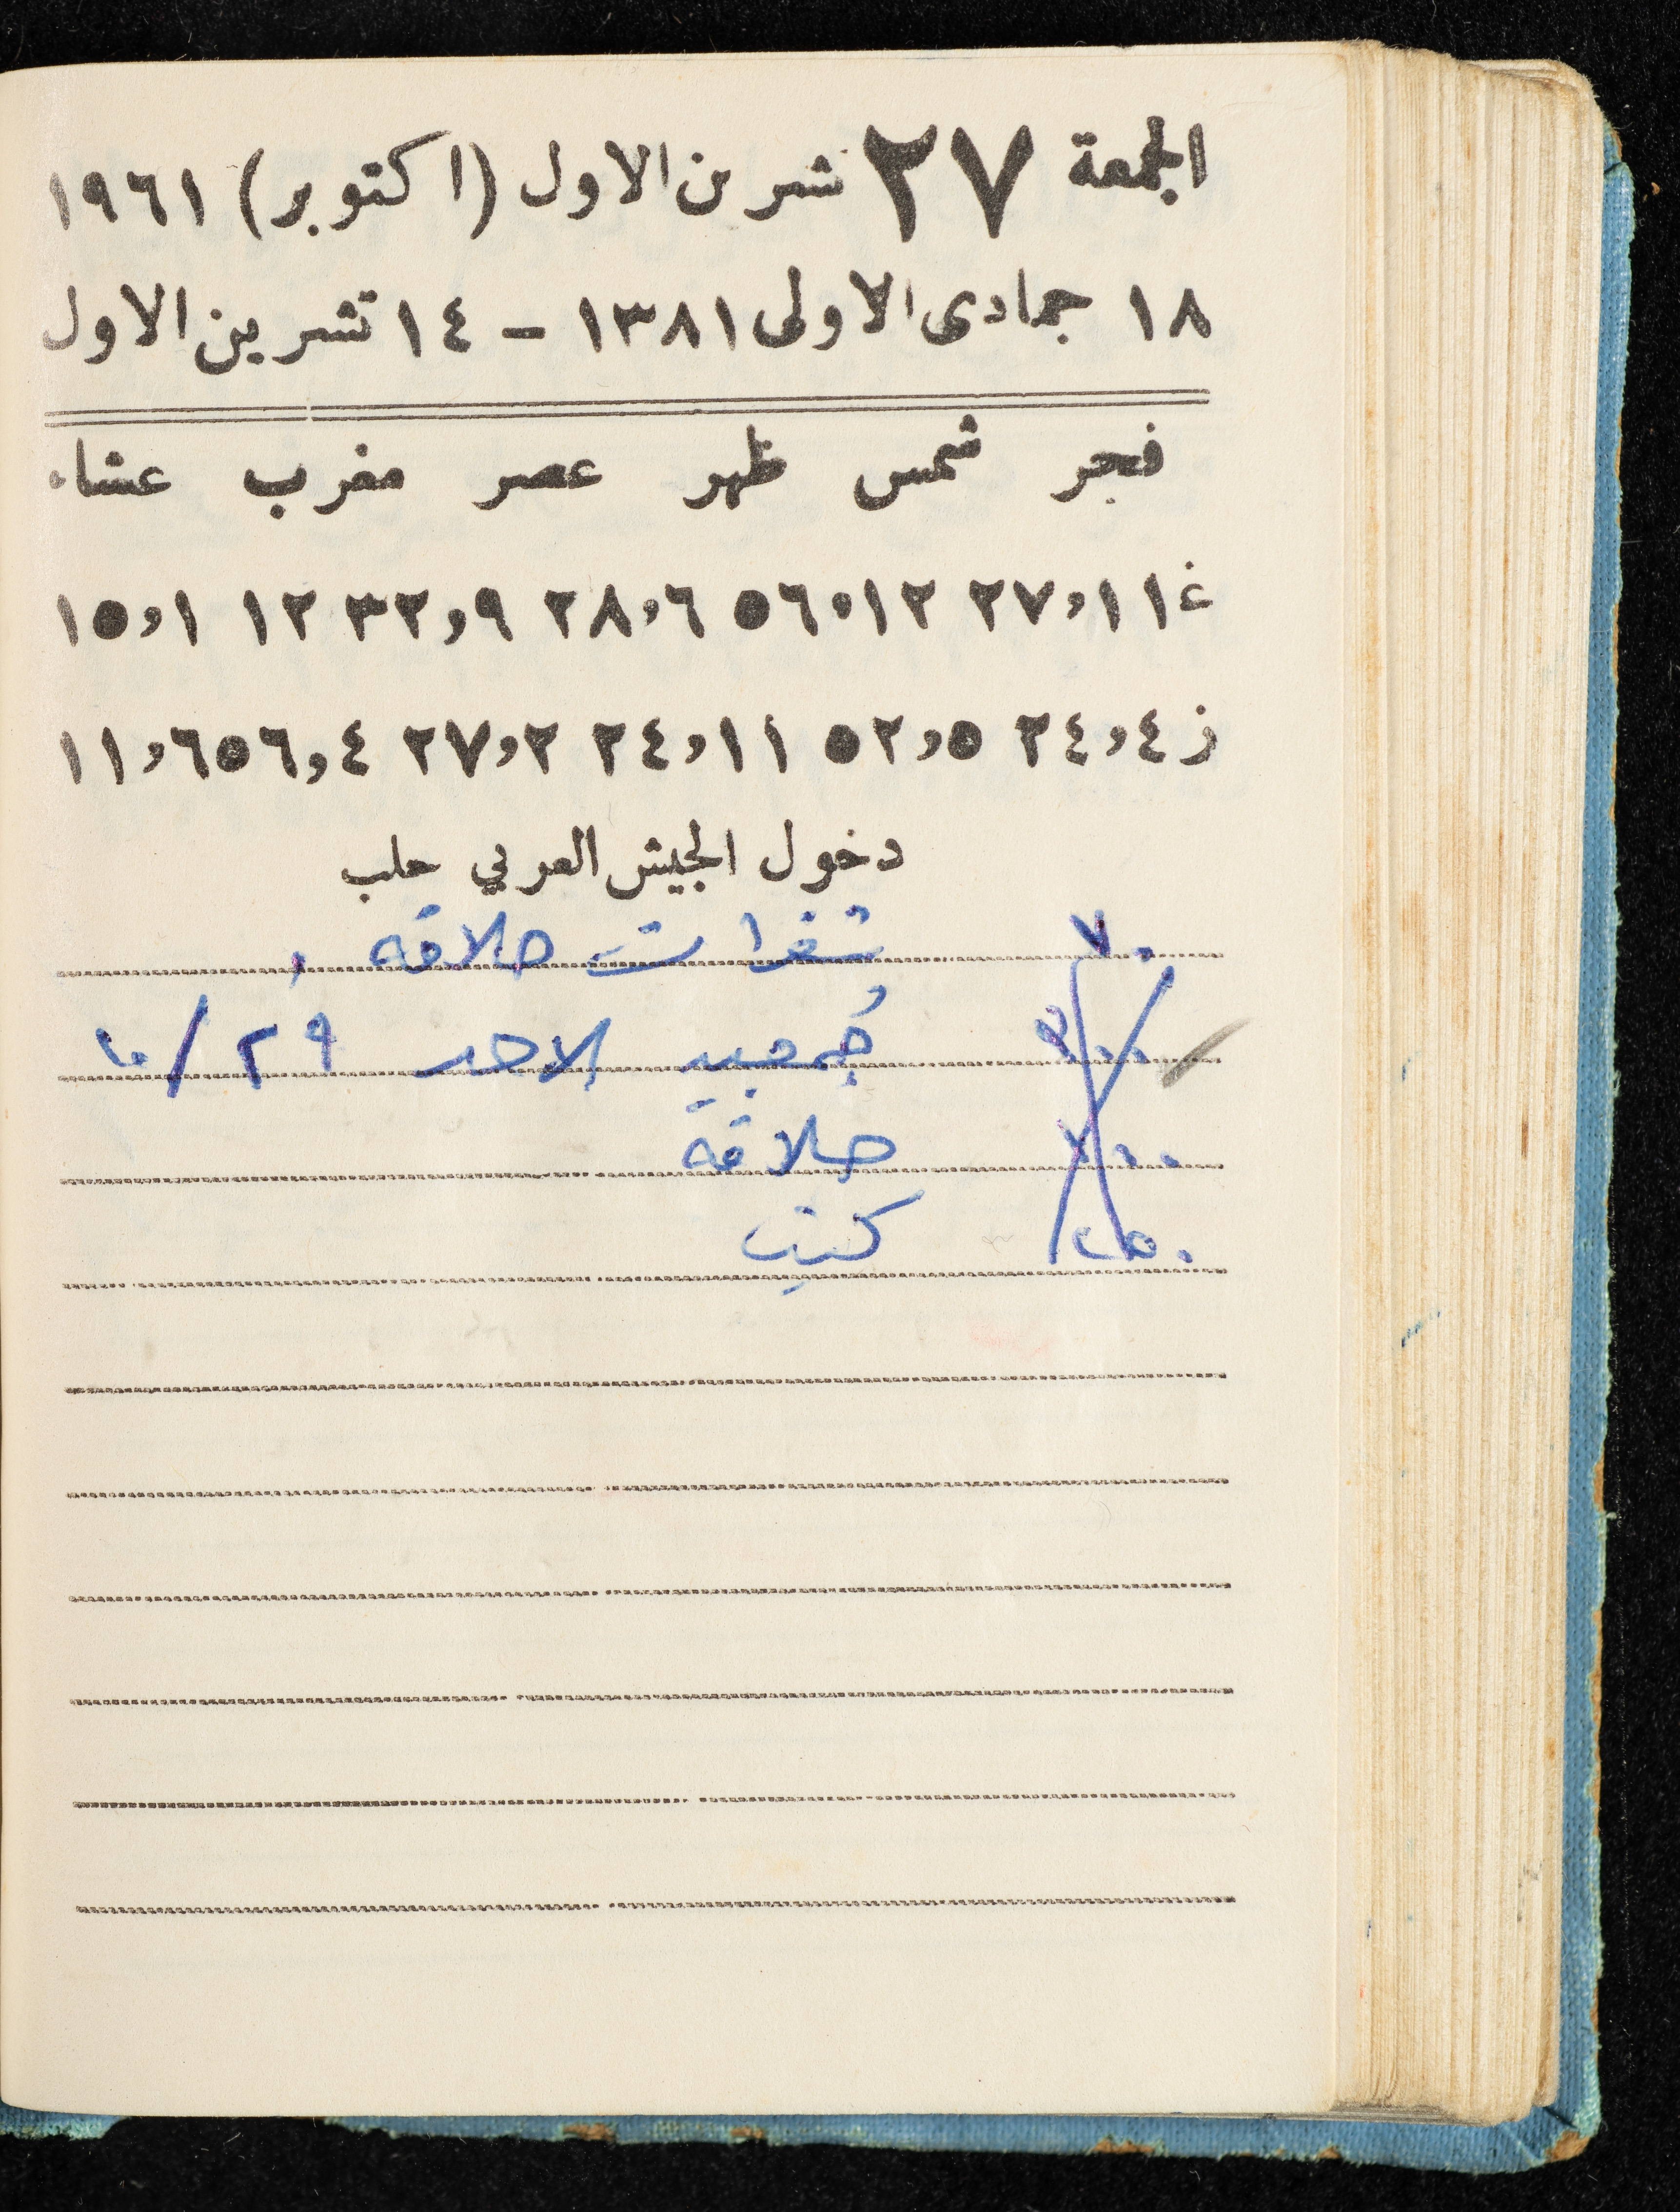 الجمعة ٢٧ تشرين الاول (اكتوبر) ١٩٦١
١٨ جمادى الاولى ١٣٨١ - ١٤ تشرين الاول
فجر شمس ظهر عصر مغرب عشاء
غ ١١،٢٧ ١٢،٥٦ ٦،٢٨ ٩،٣٢ ١٢ ١،١٥
ز ٤،٢٤ ٥،٥٢ ١١،٢٤ ٢،٢٧ ٤،٥٦ ٦،١١
دخول الجيش العربي حلب
٧٠ شفرات حلاقة
٣٠٠ الاحد ٢٩/١٠
حلاقة
٢٥٠ كتب